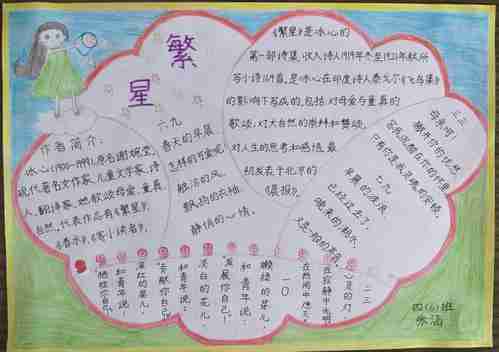 繁
星
《繁星》是冰心的
第一部诗集,收入诗人1919年冬至1921年秋所
写小诗164首,是冰心在印度诗人泰戈尔《飞鸟集》
的影响下写成的,包括对母爱与童真的
歌颂,对大自然的崇拜和赞颂,
对人生的思考和感悟,最
初发表于北京的
《晨报》
作者简介:
冰心(1900-1999),原名谢婉莹,
现代著名文作家,儿童文学家,诗
人,翻译家,她歌颂母爱、童真、
自然,代表作品有《繁星》,
《春水》,《寄小读者》,
六九
春天的早晨
怎样的可爱呢
融洽的风,
飘扬的衣袖,
静悄的心情。
三三
母亲呵!
撇开你的忧愁
容我沉酣在你的怀里
只有你是我灵魂的安顿。
七九
早晨的波浪
已经过去了,
晚来的潮水,
又是一般的声音
二三
心灵的灯,
在寂静中光明,
在热闹中熄灭。
一〇
嫩绿的芽儿,
和青年说:
"发展你自己!"
淡白的花儿,
和青年说:
"贡献你自己!"
深红的果儿,
和青年说:
"牺牲你自己!"
四(6)班